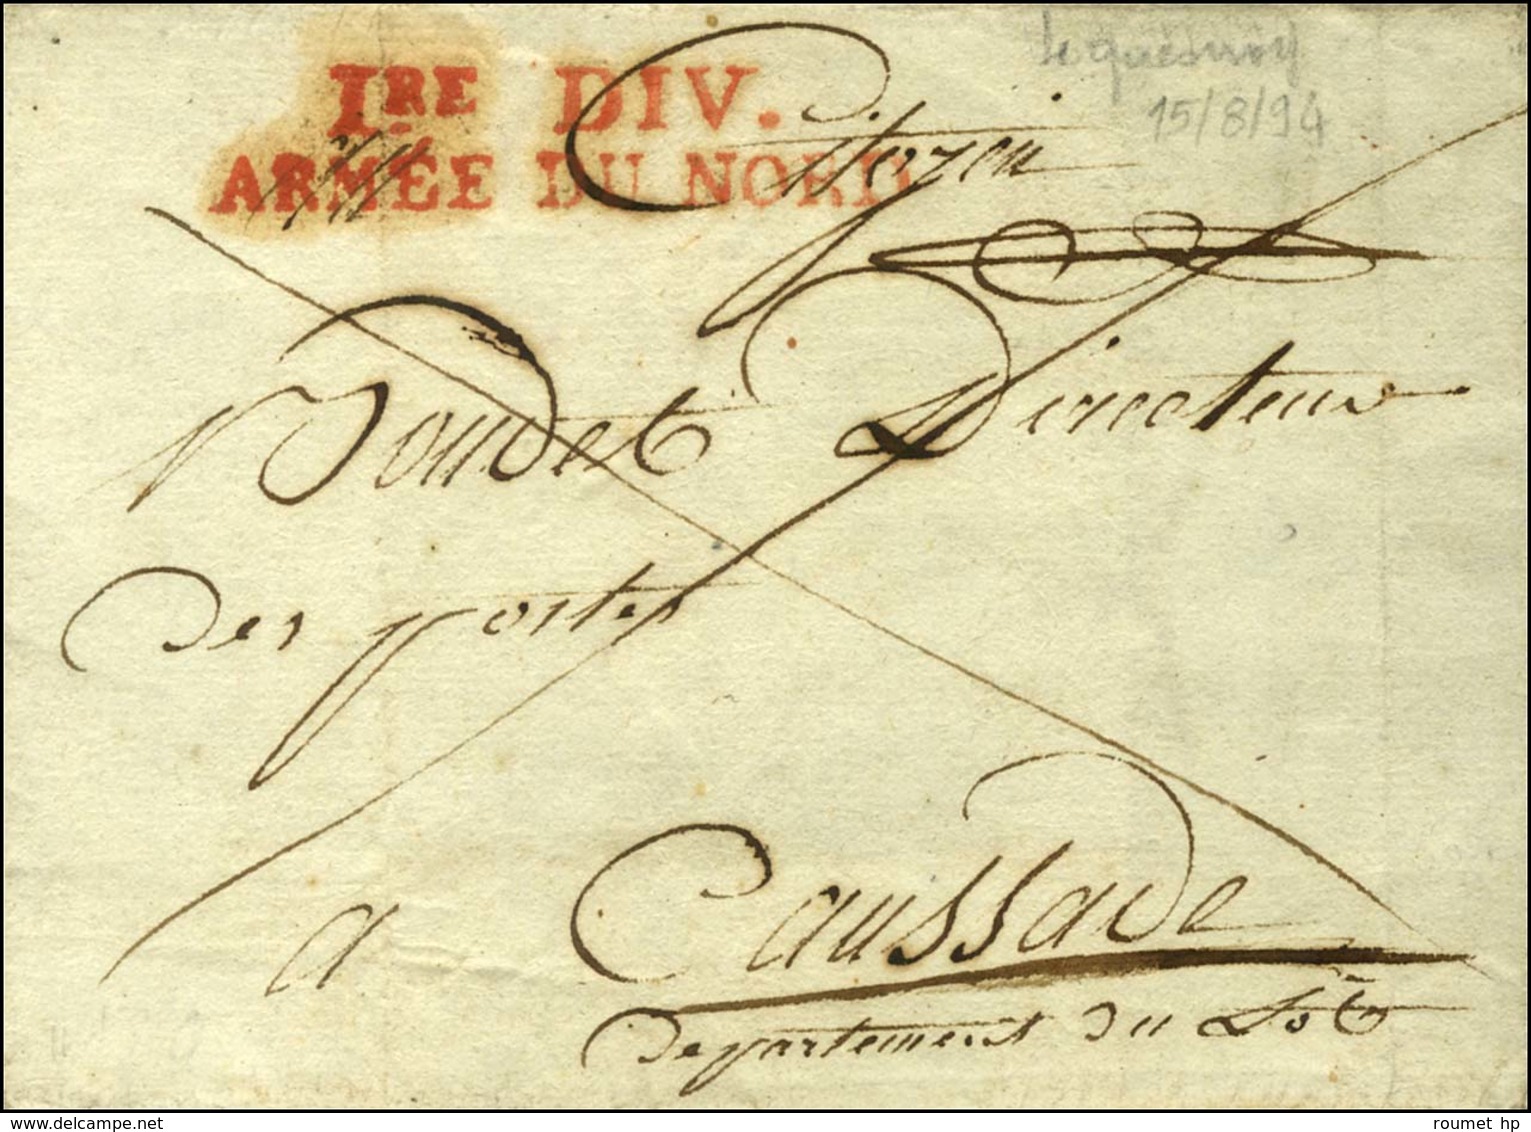 Le quesnoy
15/8/94
1RE DIV.
ARMÉE DU NORD
Citoyen
Boudet Directeur
Des postes
a Caussade
Departement Du Lot
roumet hp